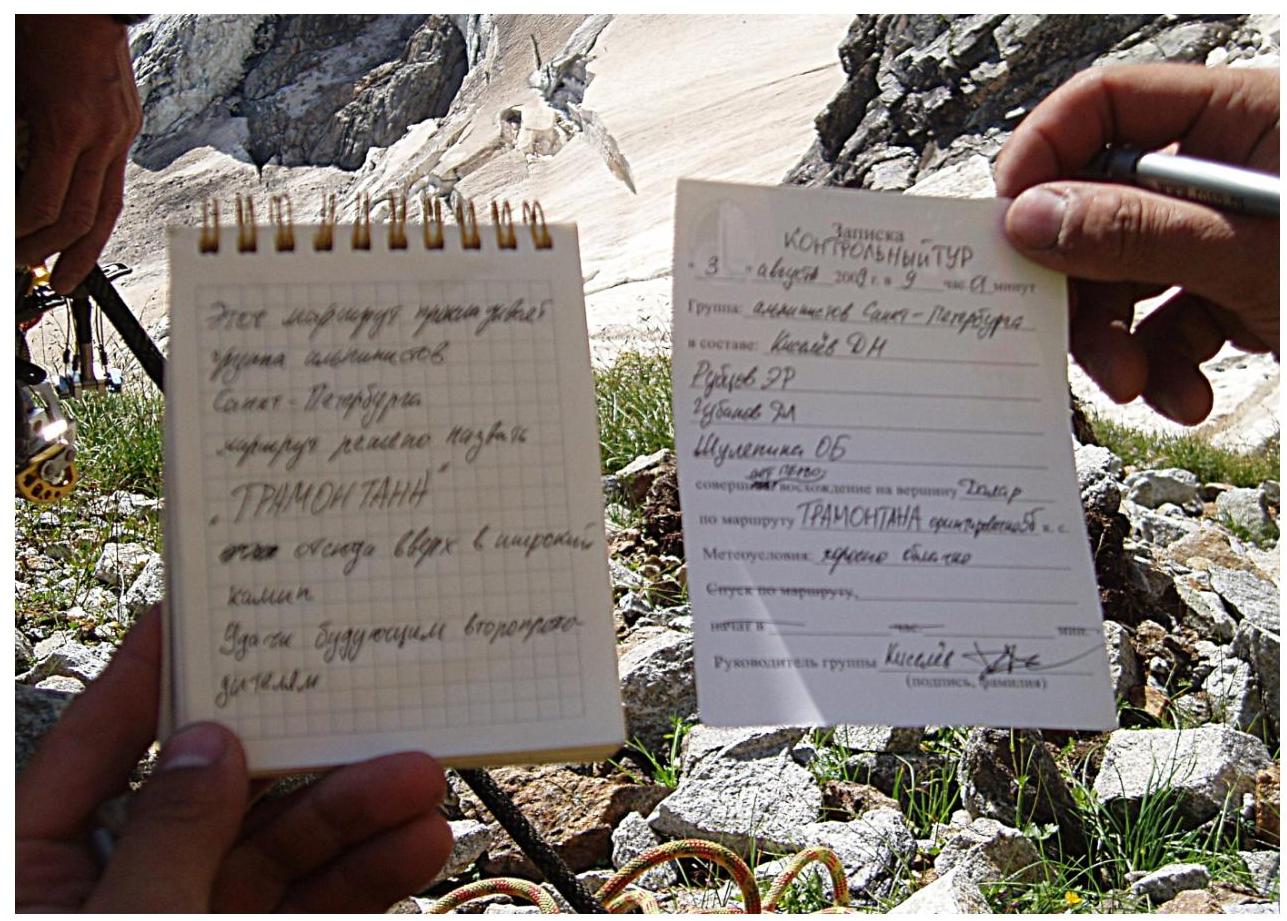 Этот маршрут прокладывает
группа альпинистов
Санкт-Петербурга
маршрут решено назвать
"ТРАМОНТАНА"
отсюда вверх в широкий
камин
Удачи будующим второпрохо-
дителям
Записка
КОНТРОЛЬНЫЙ ТУР
" 3 " августа 2009 г. в 9 час. 01 минут
Группа: альпинистов Санкт-Петербурга
в составе: Киселёв ДН
Рубцов ЭР
Губанов
Шулепина ОБ
восхождение на вершину Далар
по маршруту ТРАМОНТАНА ориентировочно 5Б к. с.
Метеоусловия: облачно
Спуск по маршруту,
начат в час. мин.
Руководитель группы Киселёв
(подпись, фамилия)